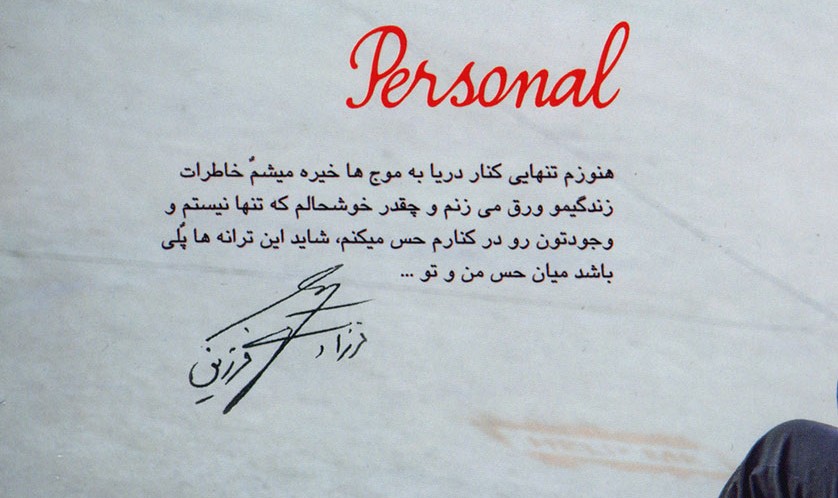 Personal
هنوزم تنهایی کنار دریا به موج ها خیره میشمُ خاطرات
زندگیمو ورق می زنم و چقدر خوشحالم که تنها نیستم و
وجودتون رو در کنارم حس میکنم، شاید این ترانه ها پُلی
باشد میان حس من و تو ...
فرزاد فرزین